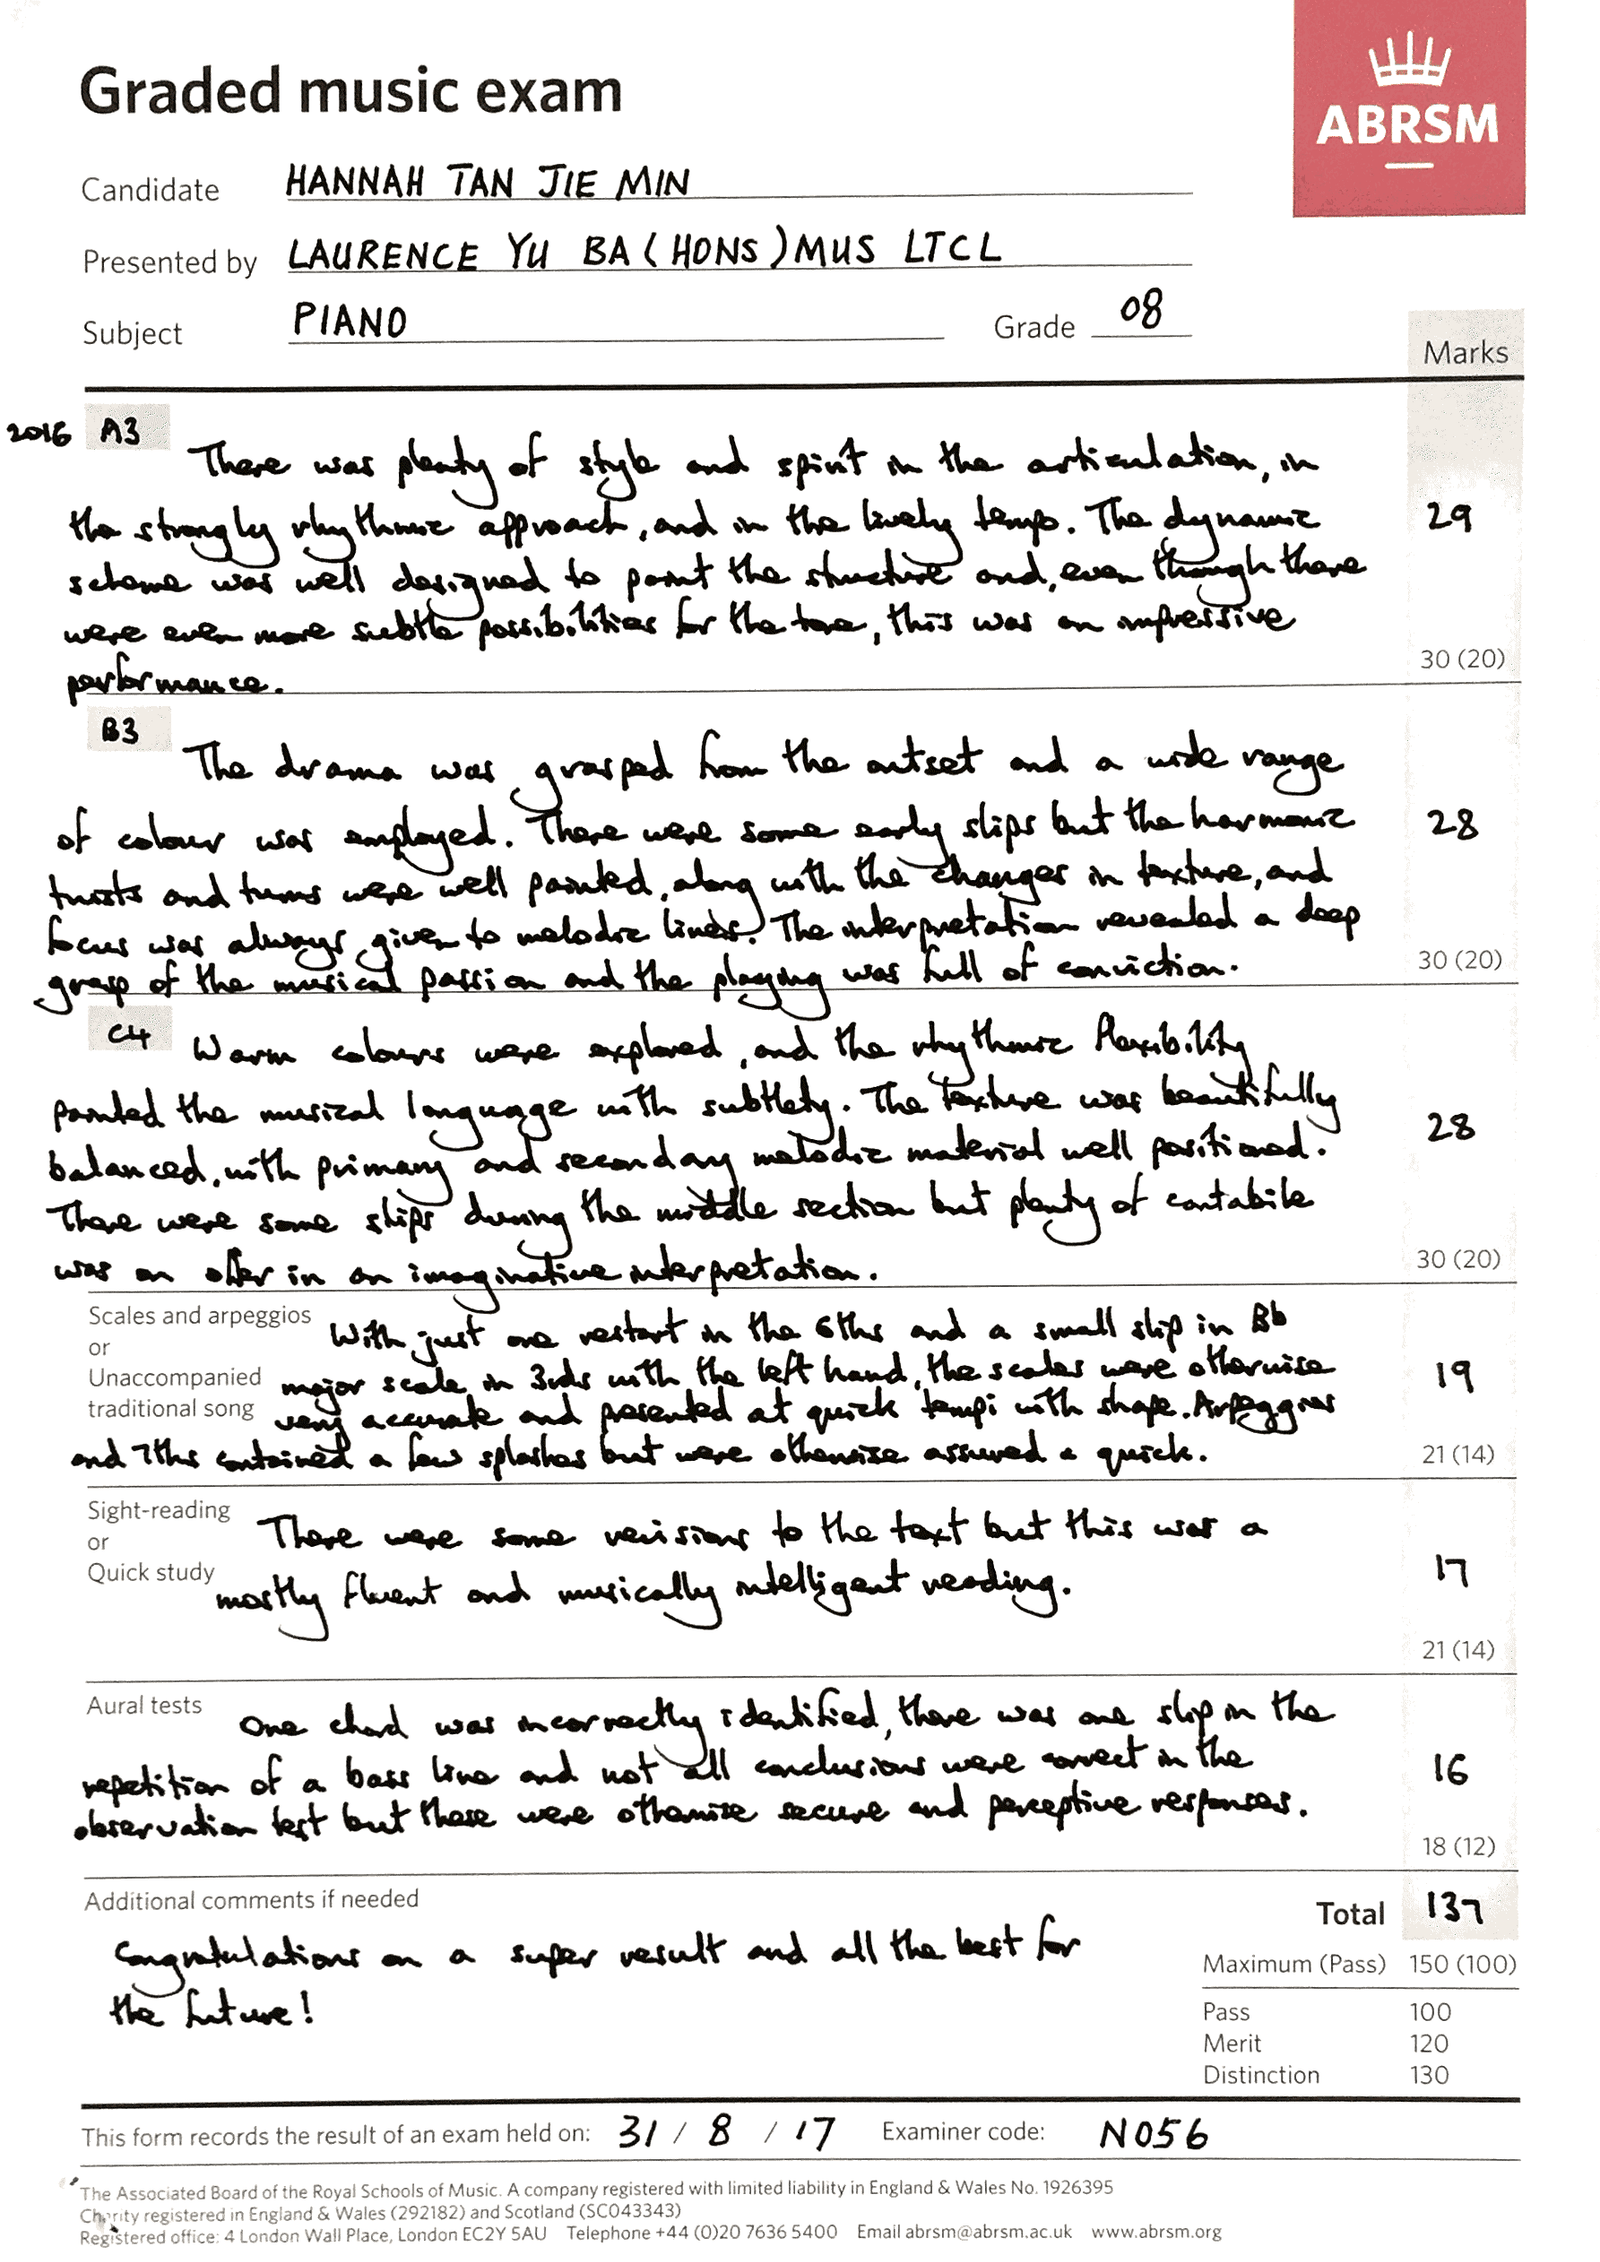 Graded music exam
ABRSM
Candidate HANNAH TAN JIE MIN
Presented by LAURENCE YU BA (HONS) MUS LTCL
Subject PIANO Grade 08
Marks
2016 A3 There was plenty of style and spirit in the articulation, in
the strongly rhythmic approach, and in the lively tempo. The dynamic 29
scheme was well designed to point the structure and, even though there
were even more subtle possibilities for the tone, this was an impressive
30 (20)
performance.
B3 The drama was grasped from the outset and a wide range
of colour was employed. There were some early slips but the harmonic 28
twists and turns were well pointed, along with the changes in texture, and
focus was always given to melodic lines. The interpretation revealed a deep
grasp of the musical passion and the playing was full of conviction. 30 (20)
C4 Warm colours were explored, and the rhythmic flexibility
pointed the musical language with subtlety. The texture was beautifully
balanced, with primary and secondary melodic material well positioned. 28
There were some slips during the middle section but plenty of cantabile
was on offer in an imaginative interpretation. 30 (20)
Scales and arpeggios With just one restart in the 6ths and a small slip in Bb
or
Unaccompanied major scale in 3rds with the left hand, the scales were otherwise 19
traditional song very accurate and presented at quick tempi with shape. Arpeggios
and 7ths contained a few splashes but were otherwise assured & quick. 21 (14)
Sight-reading There were some revisions to the text but this was a
or
Quick study mostly fluent and musically intelligent reading. 17
21 (14)
Aural tests One chord was incorrectly identified, there was one slip in the
repetition of a bass line and not all conclusions were correct in the 16
observation test but these were otherwise secure and perceptive responses.
18 (12)
Additional comments if needed Total 137
Congratulations on a super result and all the best for
Maximum (Pass) 150 (100)
the future!
Pass 100
Merit 120
Distinction 130
This form records the result of an exam held on: 31 / 8 / 17 Examiner code: N056
The Associated Board of the Royal Schools of Music. A company registered with limited liability in England & Wales No. 1926395
Charity registered in England & Wales (292182) and Scotland (SC043343)
Registered office: 4 London Wall Place, London EC2Y 5AU Telephone +44 (0)20 7636 5400 Email abrsm@abrsm.ac.uk www.abrsm.org